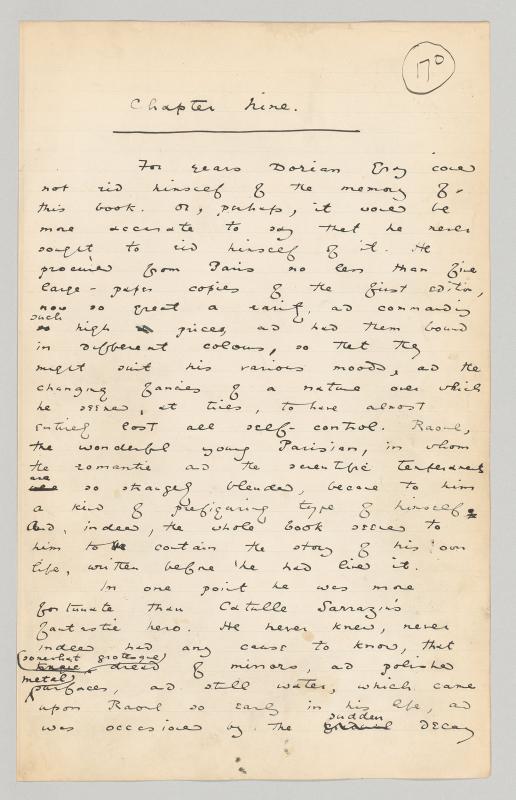 170
Chapter Nine.
For years Dorian Gray could
not rid himself of the memory of
this book. Or, perhaps, it would be
more accurate to say that he never
sought to rid himself of it. He
procured from Paris no less than five
large-paper copies of the first edition,
now so great a rarity, and commanding
such
high prices, and had them bound
in different colours, so that they
might suit his various moods, and the
changing fancies of a nature over which
he seemed, at times, to have almost
entirely lost all self-control. Raoul,
the wonderful young Parisian, in whom
the romantic and the scientific temperament
were
so strangely blended, became to him
a kind of prefiguring type of himself.
And, indeed, the whole book seemed to
him to contain the story of his own
life, written before he had lived it.
In one point he was more
fortunate than Catulle Sarrazin's
fantastic hero. He never knew, never
indeed had any cause to know, that
(somewhat grotesque)
dread of mirrors, and polished
metal
surfaces, and still water, which came
upon Raoul so early in his life, and
sudden
was occasioned by the decay